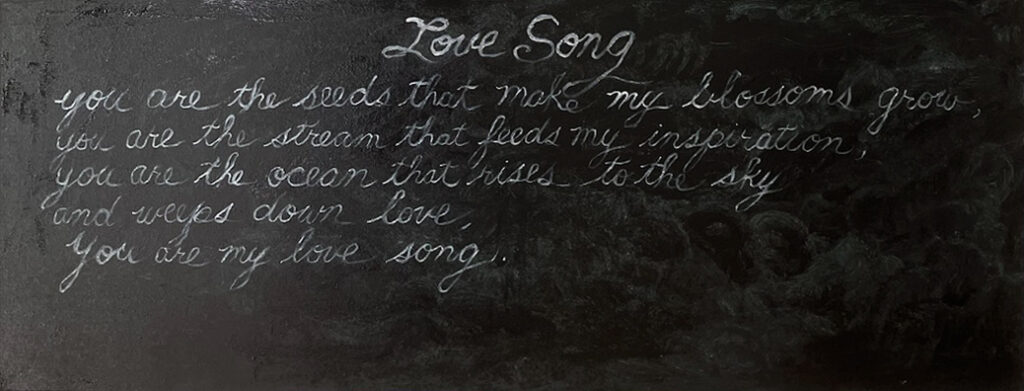 Love Song
you are the seeds that make my blossoms grow,
you are the stream that feeds my inspiration,
you are the ocean that rises to the sky
and weeps down love,
You are my love song.